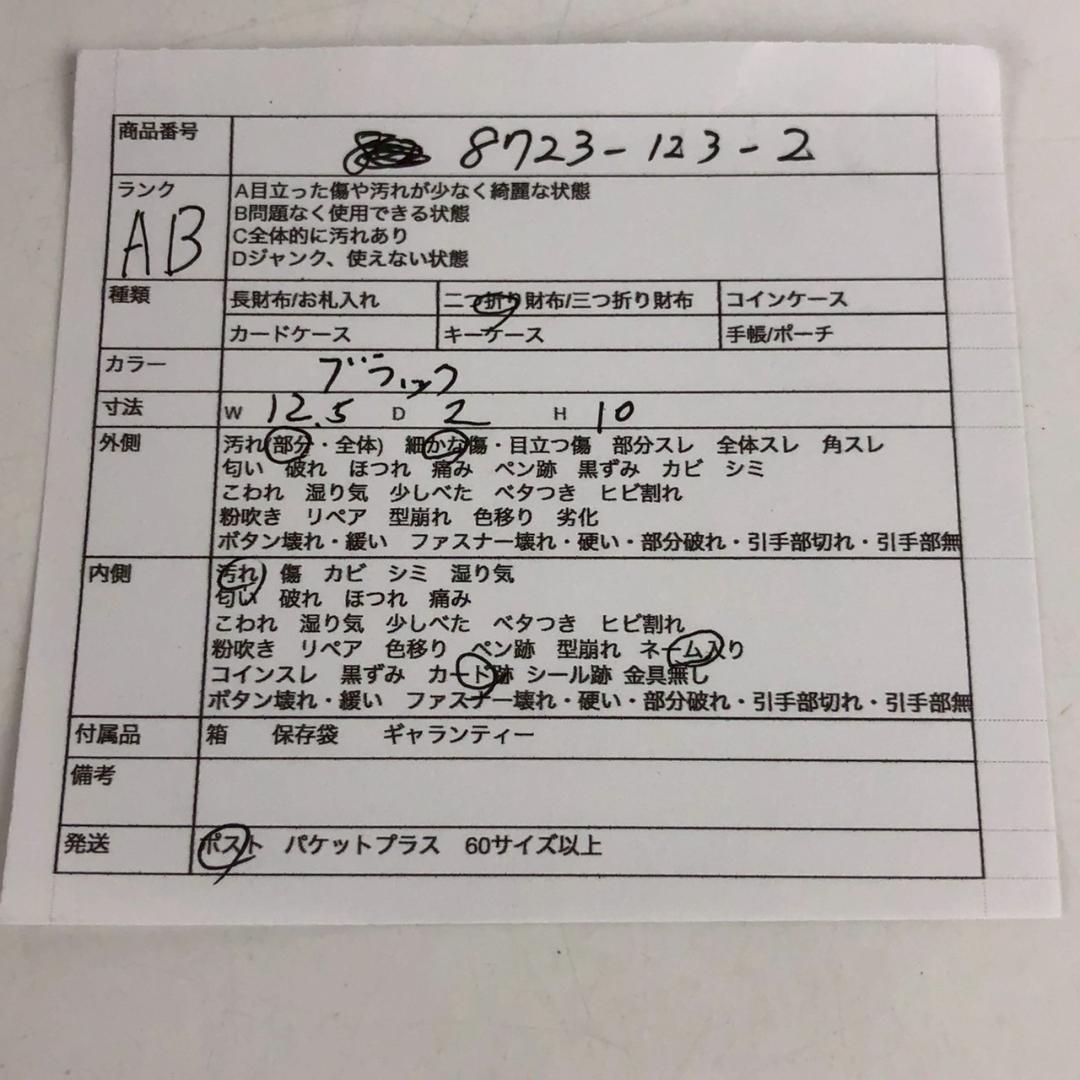 商品番号 8723-123-2
ランク AB
A目立った傷や汚れが少なく綺麗な状態
B問題なく使用できる状態
C全体的に汚れあり
Dジャンク、使えない状態
種類 長財布/お札入れ 二つ折り財布/三つ折り財布 コインケース
カードケース キーケース 手帳/ポーチ
カラー ブラック
寸法 W 12.5 D 2 H 10
外側 汚れ(部分・全体) 細かな傷・目立つ傷 部分スレ 全体スレ 角スレ
匂い 破れ ほつれ 痛み ペン跡 黒ずみ カビ シミ
こわれ 湿り気 少しべた ベタつき ヒビ割れ
粉吹き リペア 型崩れ 色移り 劣化
ボタン壊れ・緩い ファスナー壊れ・硬い・部分破れ・引手部切れ・引手部無
内側 汚れ 傷 カビ シミ 湿り気
匂い 破れ ほつれ 痛み
こわれ 湿り気 少しべた ベタつき ヒビ割れ
粉吹き リペア 色移り ペン跡 型崩れ ネーム入り
コインスレ 黒ずみ カード跡 シール跡 金具無し
ボタン壊れ・緩い ファスナー壊れ・硬い・部分破れ・引手部切れ・引手部無
付属品 箱 保存袋 ギャランティー
備考
発送 ポスト パケットプラス 60サイズ以上